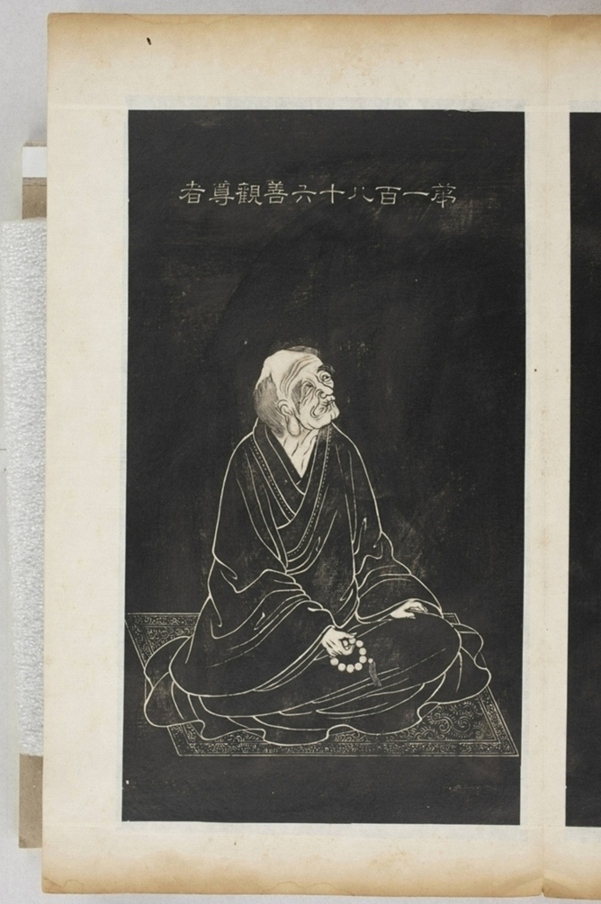 第一百八十六善觀尊者